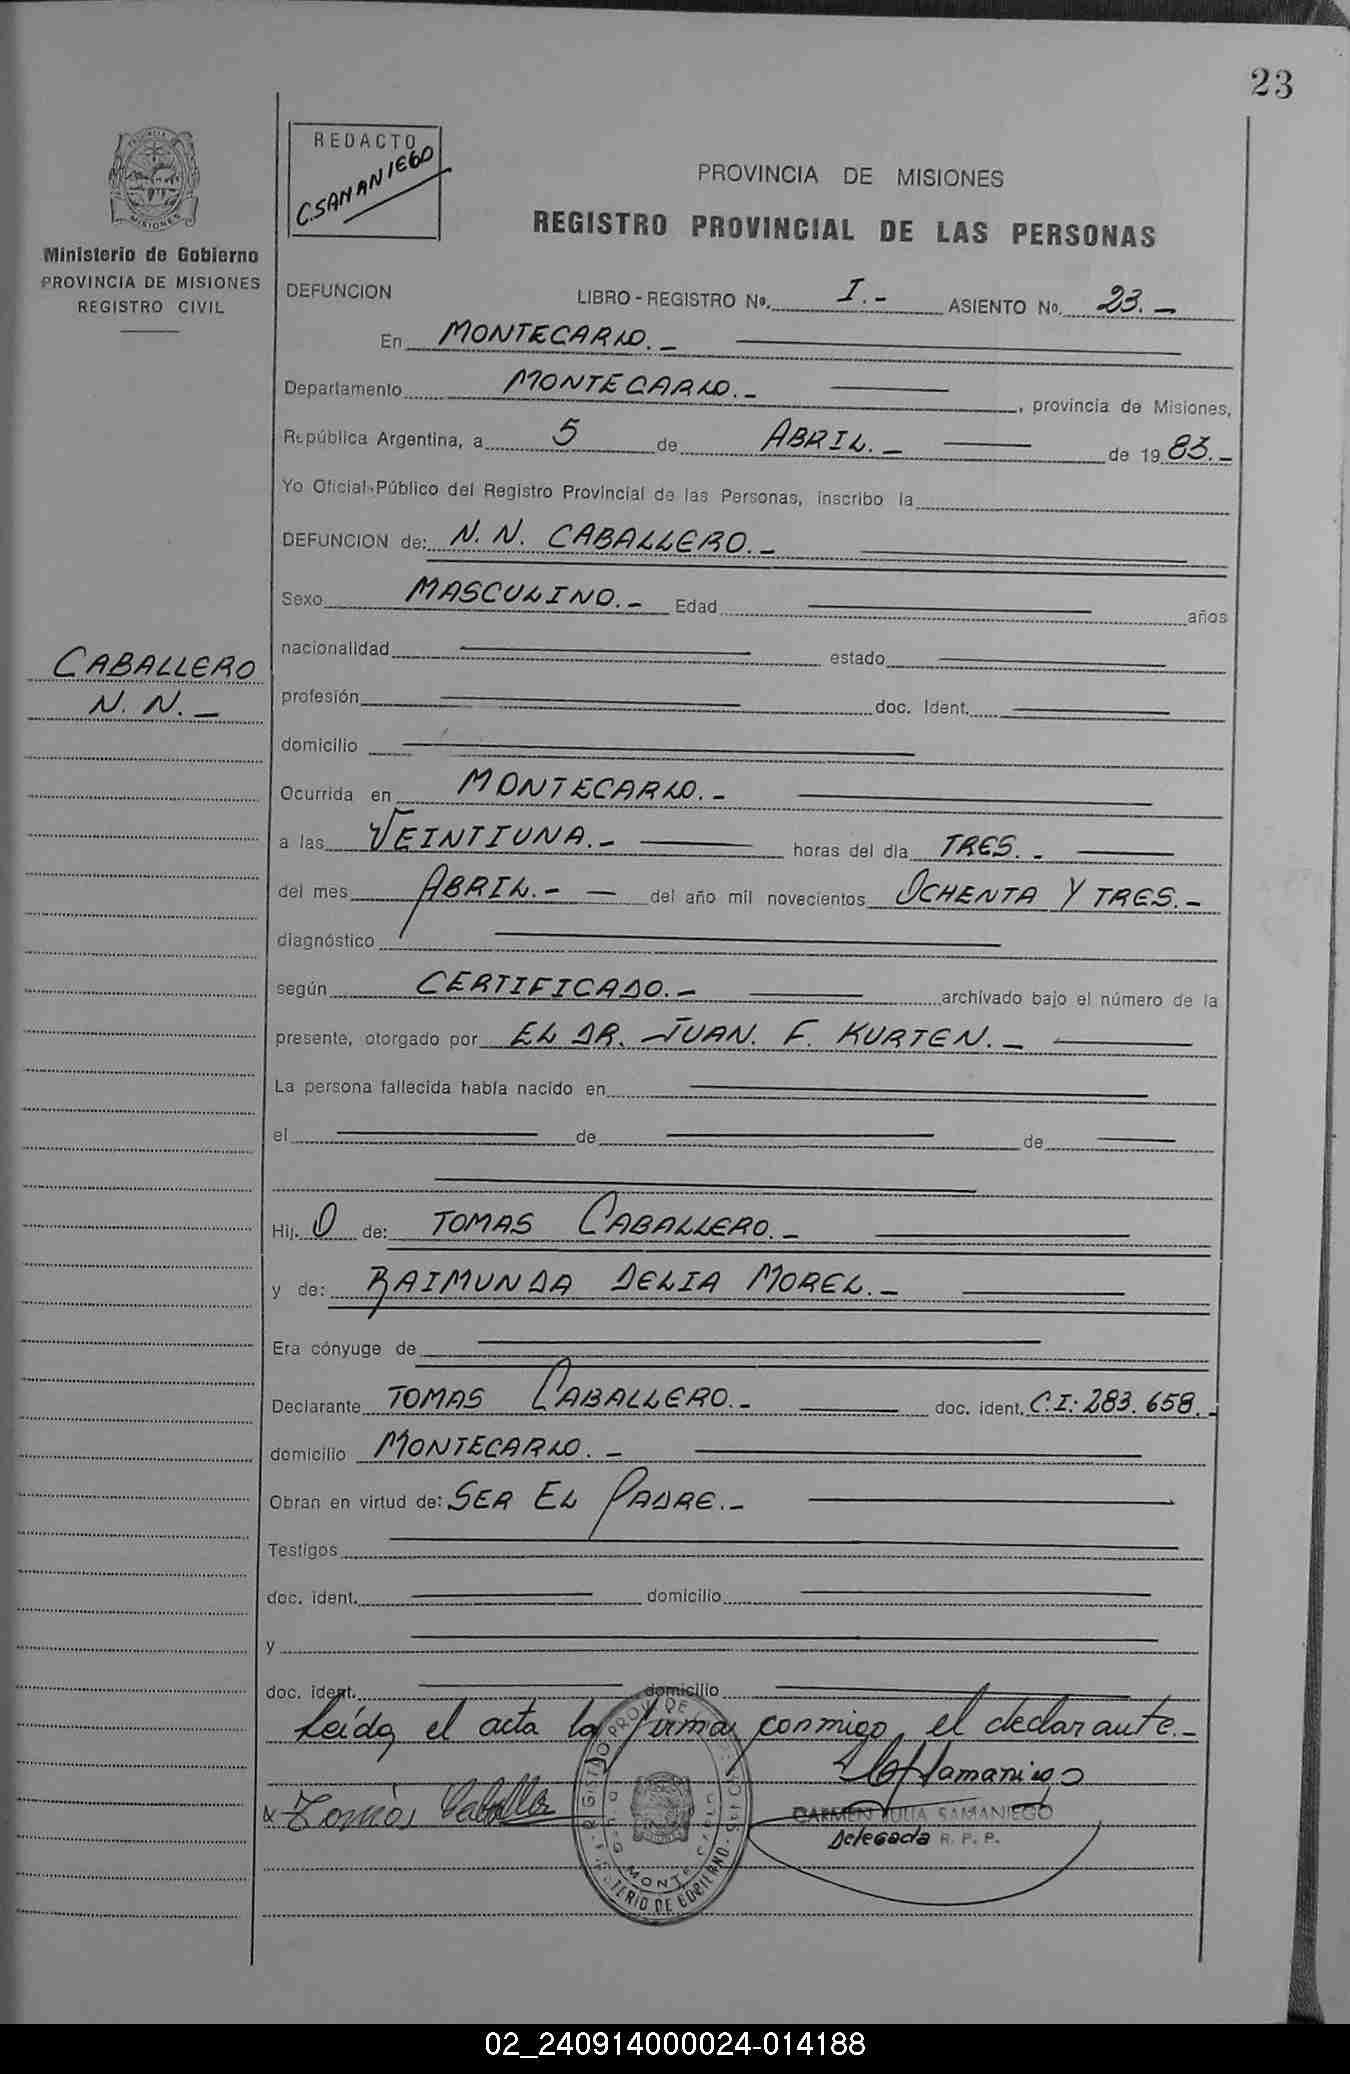 23
REDACTO
C. SAMANIEGO
PROVINCIA DE MISIONES
REGISTRO PROVINCIAL DE LAS PERSONAS
MISIONES
Ministerio de Gobierno
PROVINCIA DE MISIONES
REGISTRO CIVIL
DEFUNCION LIBRO - REGISTRO Nº. I.- ASIENTO No. 23.-
En MONTECARLO.-
Departamento MONTECARLO.- , provincia de Misiones,
República Argentina, a 5 de ABRIL.- de 19 83.-
Yo Oficial Público del Registro Provincial de las Personas, inscribo la
DEFUNCION de: N. N. CABALLERO.-
Sexo MASCULINO.- Edad años
CABALLERO
N. N.-
nacionalidad estado
profesión doc. Ident.
domicilio
Ocurrida en MONTECARLO.-
a las VEINTIUNA.- horas del día TRES.-
del mes ABRIL.- - del año mil novecientos OCHENTA Y TRES.-
diagnóstico
según CERTIFICADO.- archivado bajo el número de la
presente, otorgado por EL DR. JUAN. F. KURTEN.-
La persona fallecida había nacido en
el de de
Hij. O de: TOMAS CABALLERO.-
y de: RAIMUNDA DELIA MOREL.-
Era cónyuge de
Declarante TOMAS CABALLERO.- doc. ident. C.I: 283.658.-
domicilio MONTECARLO.-
Obran en virtud de: SER EL PADRE.-
Testigos
doc. ident. domicilio
y
doc. ident. domicilio
Leída el acta la firma conmigo, el declarante.-
Tomás Caballero
CARMEN JULIA SAMANIEGO
Delegada R. P. P.
MINISTERIO DE GOBIERNO
02_240914000024-014188